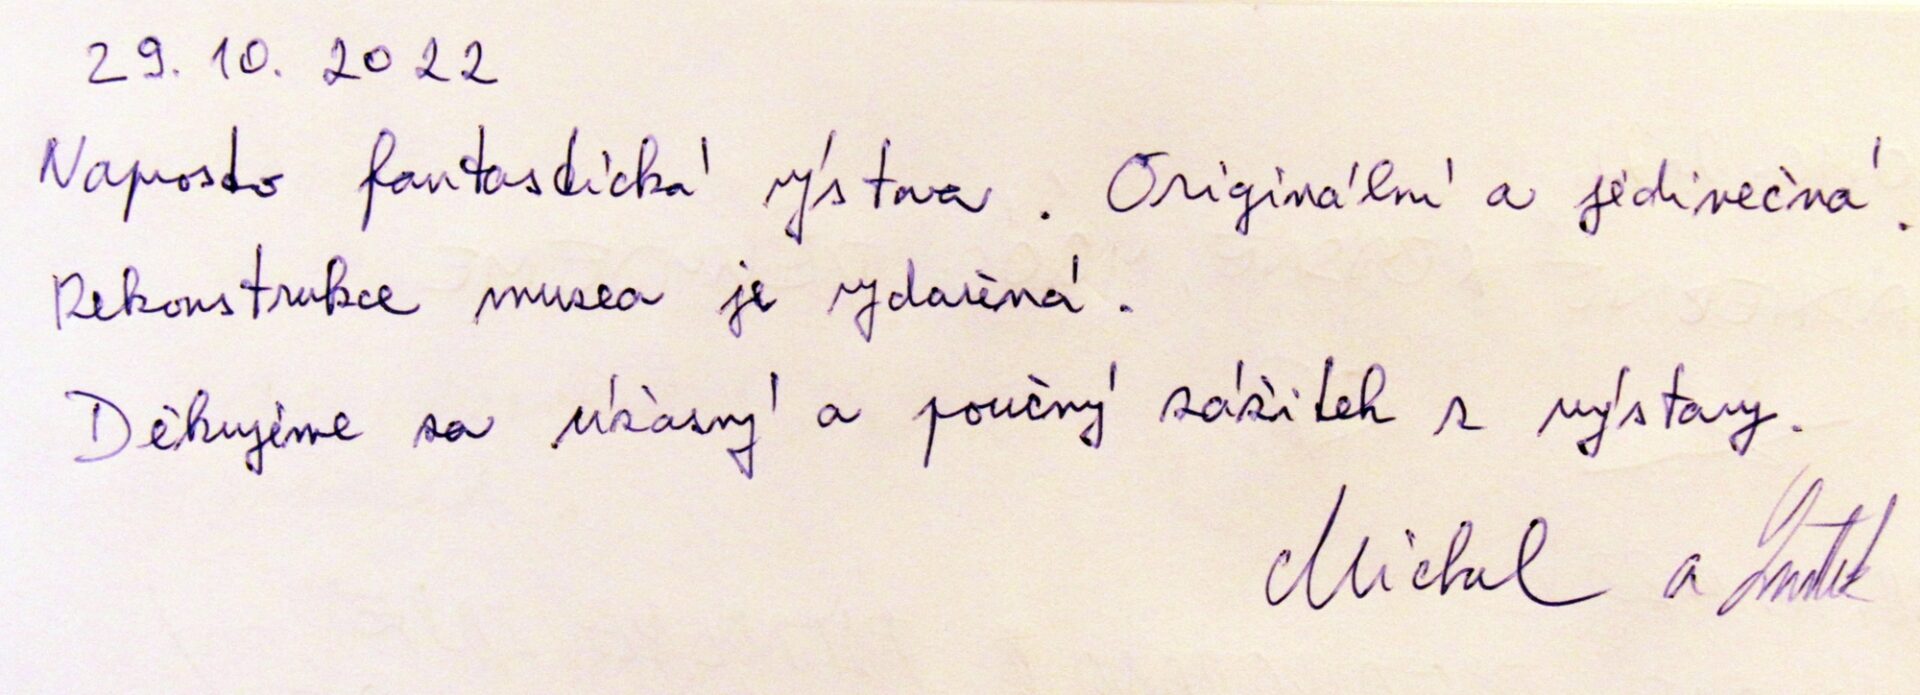 29. 10. 2022
Naprosto fantastická výstava. Originální a jedinečná.
Rekonstrukce musea je vydařená.
Děkujeme za úžasný a poučný zážitek z výstavy.
Michal a